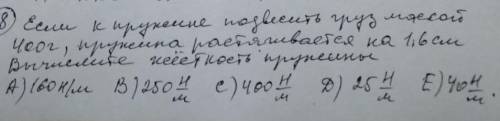 8) Если к пружине подвесить груз массой
400г, пружина растягивается на 1,6 см
Вычислите жёсткость пружины
A) 160 Н/м B) 250 Н/м C) 400 Н/м D) 25 Н/м E) 40 Н/м.